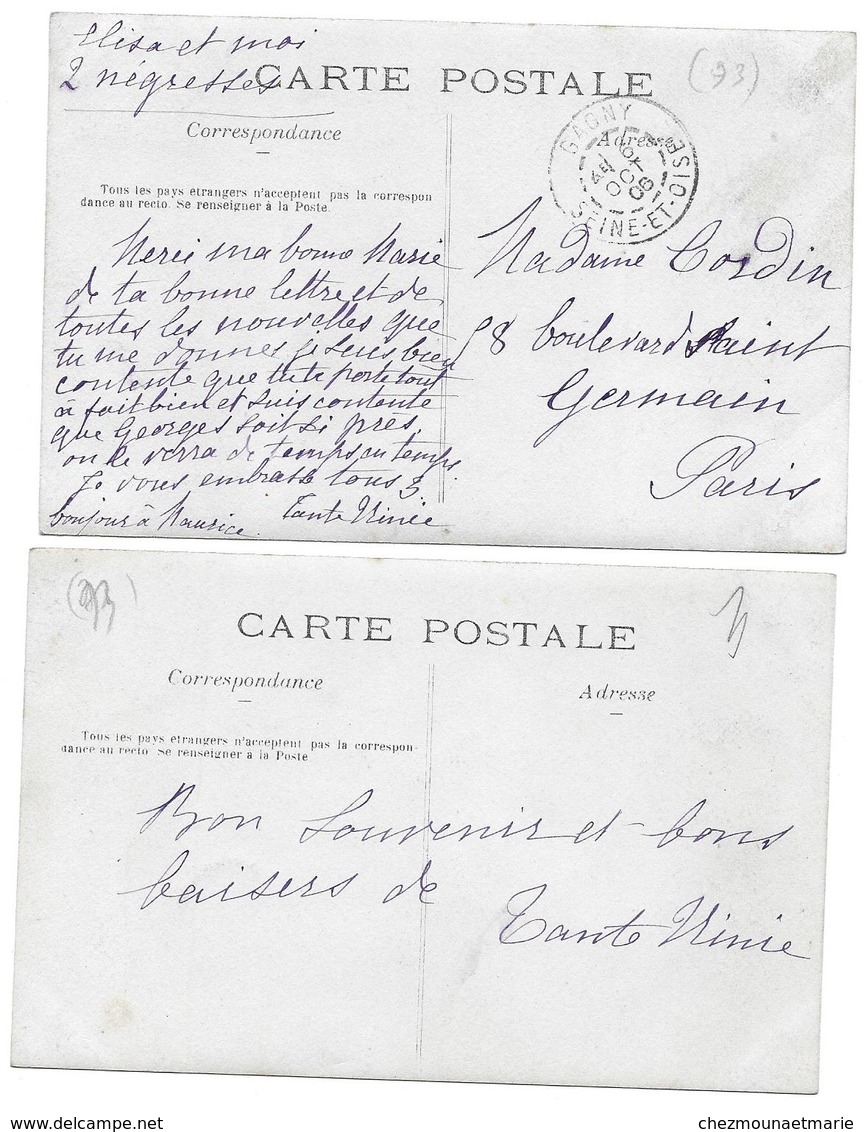 Elisa et moi
2 négresses
CARTE POSTALE
(93)
Correspondance
Adresse
GAGNY
SEINE-ET-OISE
OCT
06
Tous les pays etrangers n'acceptent pas la correspon
dance au recto. Se renseigner à la Poste.
Merci ma bonne Marie
de ta bonne lettre et de
toutes les nouvelles que
tu me donnes je suis bien
contente que tu te porte tout
à fait bien et suis contente
que Georges soit si près,
on le verra de temps en temps.
Je vous embrasse tous 3
bonjour à Maurice. Tante Ninie
Madame Cordin
58 boulevard Saint
Germain
Paris
(93)
CARTE POSTALE
Correspondance
Adresse
Tous les pays etrangers n'acceptent pas la correspon-
dance au recto Se renseigner à la Poste
Bon souvenir et bons
baisers de
Tante Ninie
chezmounaetmarie